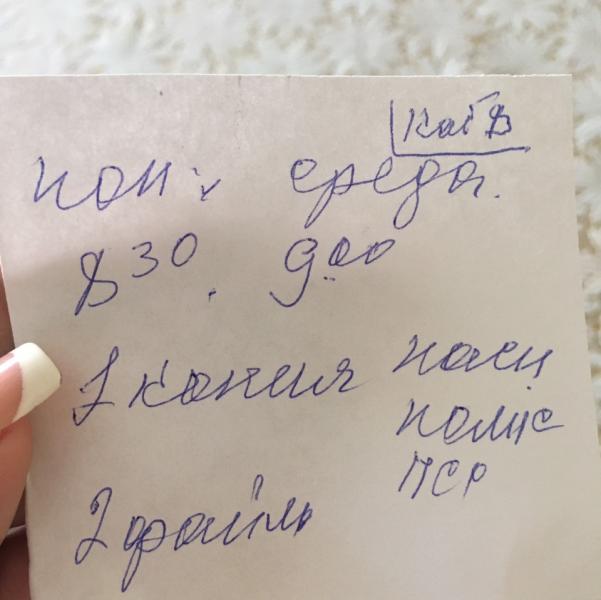 каб 8
пон. среда.
8 30. 9 00
1 копия пасп
полис
ПСР
2 файль